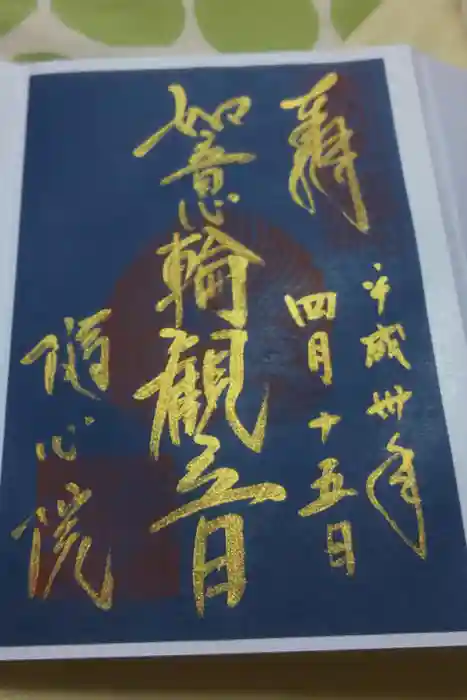 平成卅年
四月十五日
如意輪観音
随心院